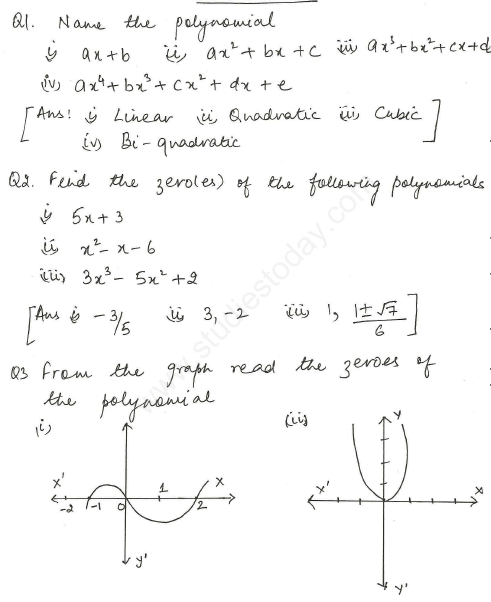 Q1. Name the polynomial
i) ax+b ii) ax²+bx+c iii) ax³+bx²+cx+d
iv) ax⁴+bx³+cx²+dx+e
[Ans: i) Linear ii) Quadratic iii) Cubic
iv) Bi-quadratic]
Q2. Find the zero(es) of the following polynomials
i) 5x+3
ii) x²-x-6
iii) 3x³-5x²+2
[Ans i) -3/5 ii) 3, -2 iii) 1, (1±√7)/6]
Q3 From the graph read the zeroes of
the polynomial
(i) (ii) y
x' -2 -1 0 1 2 x x' x
y' y'
www.studiestoday.com